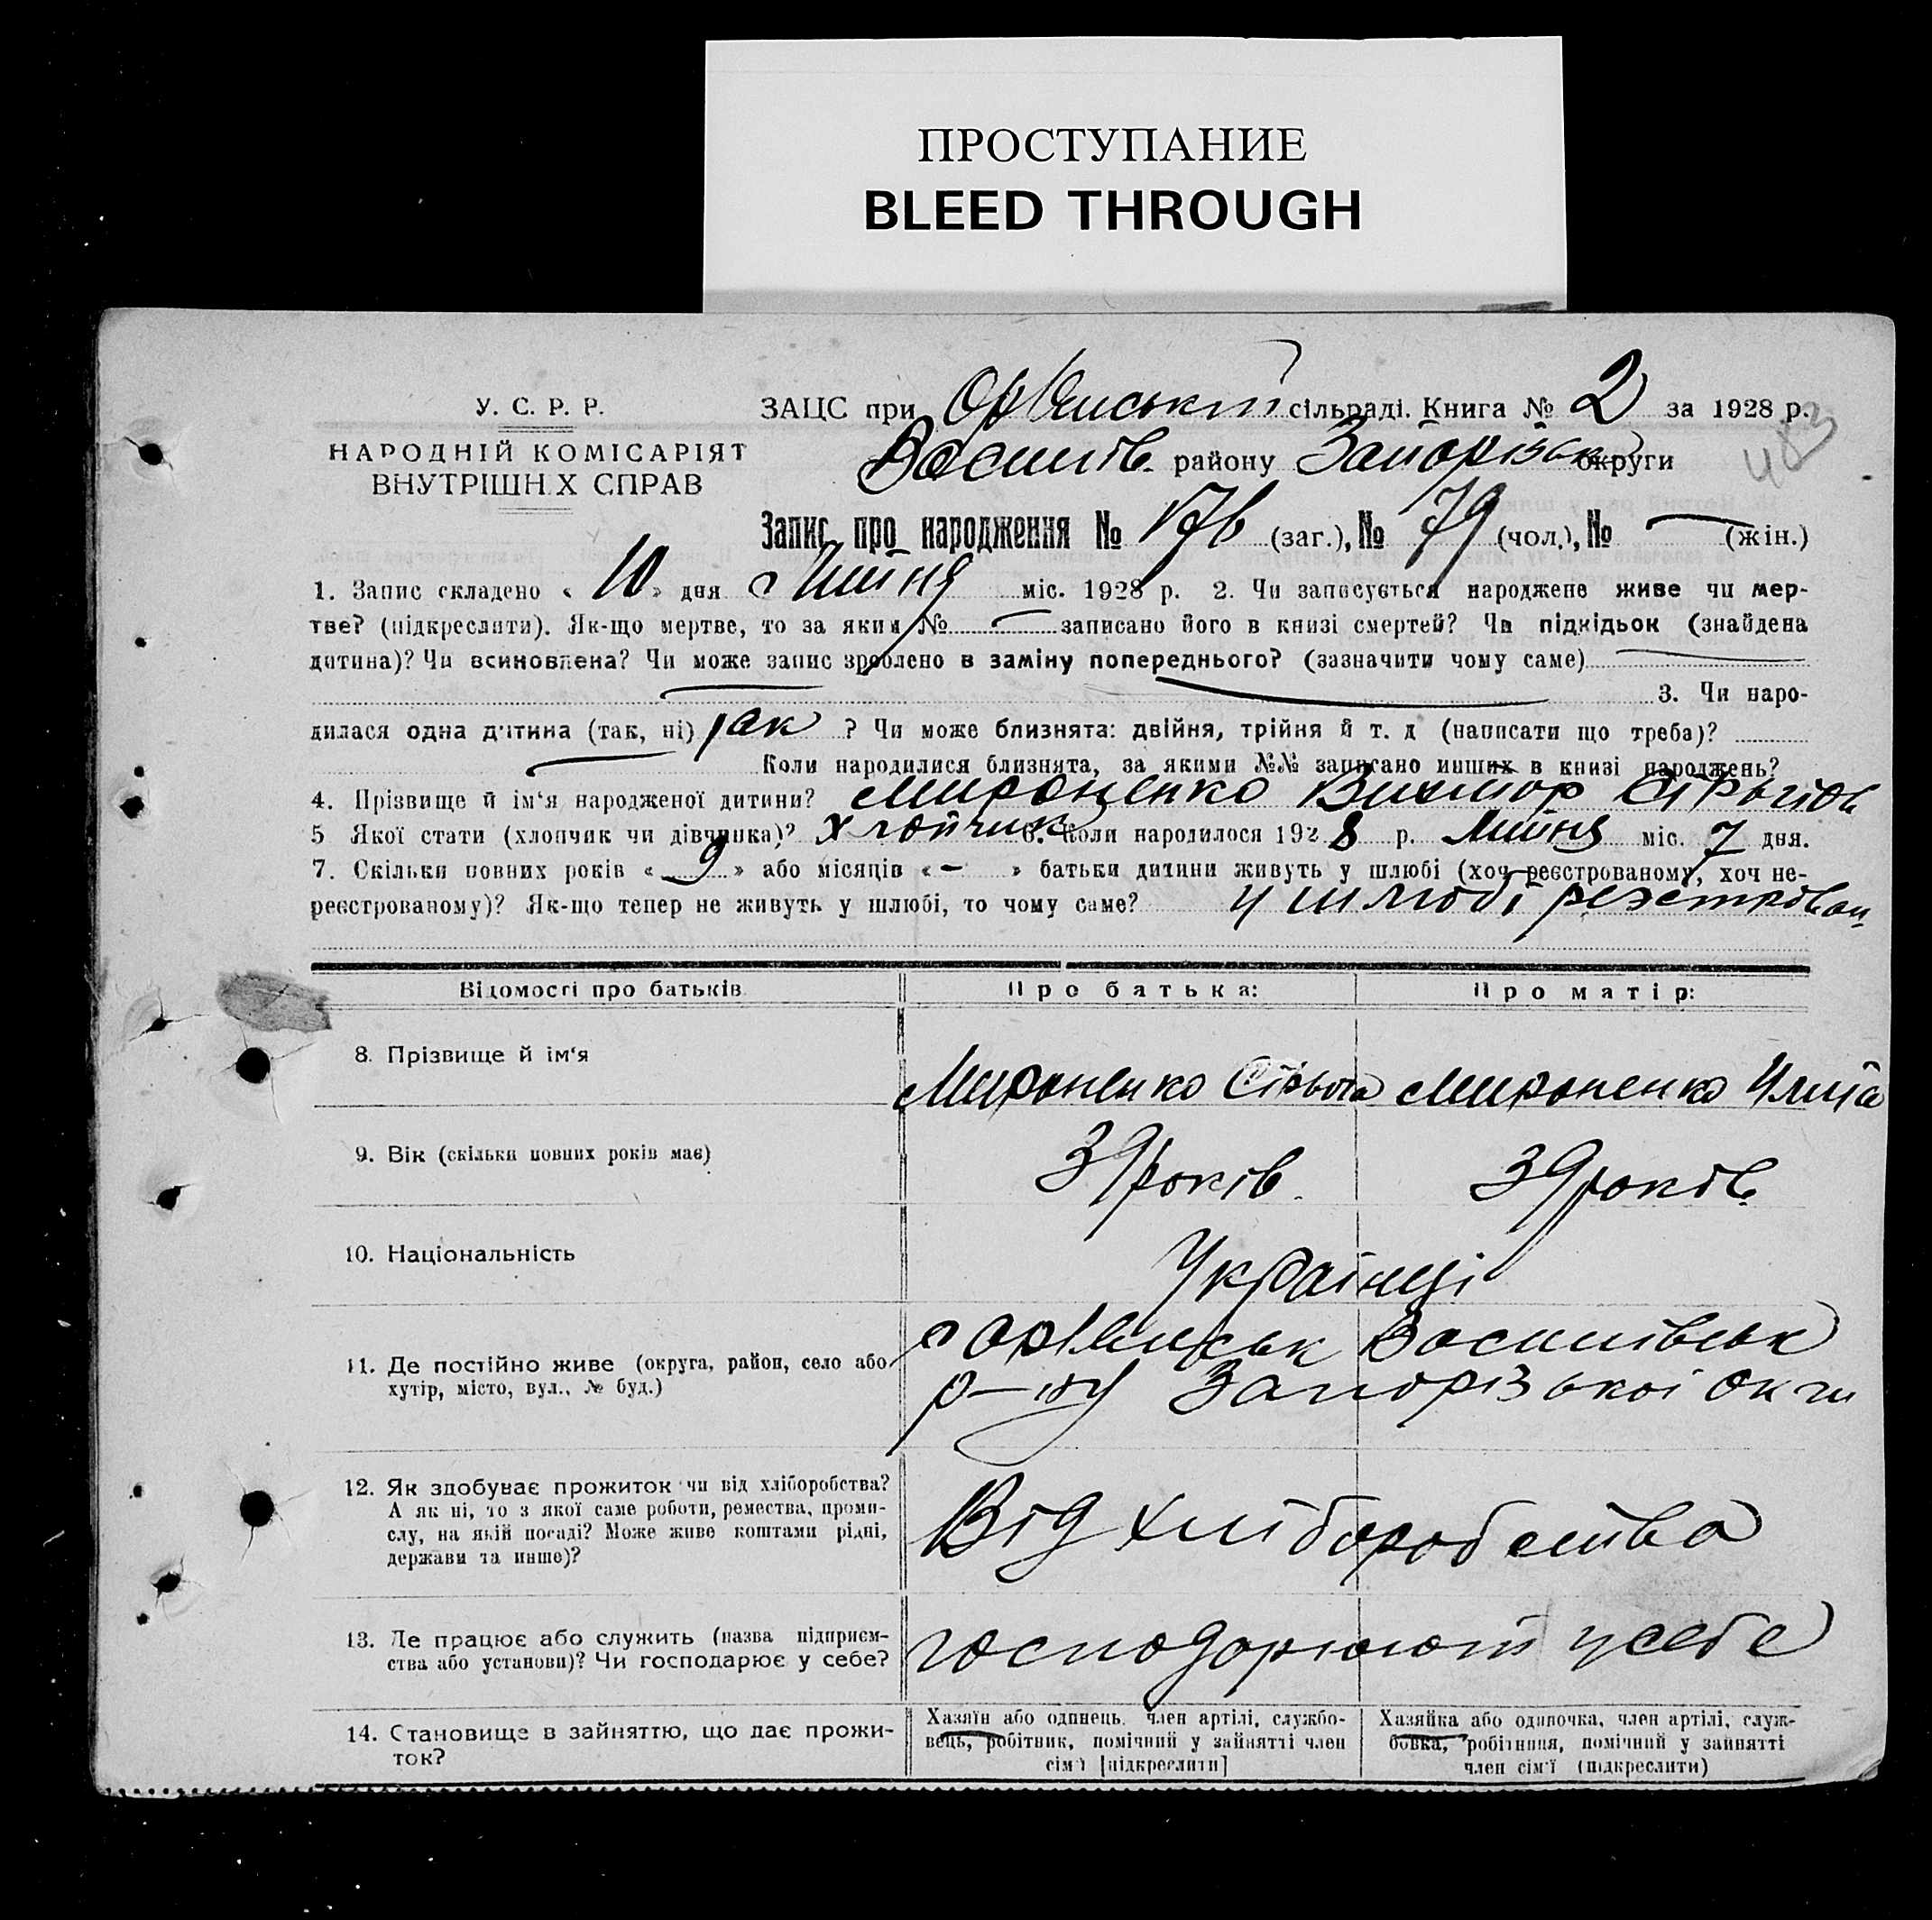 ПРОСТУПАНИЕ
BLEED THROUGH
У. С. Р. Р.
НАРОДНІЙ КОМІСАРІЯТ
ВНУТРІШНІХ СПРАВ
ЗАЦС при сільраді. Книга № 2 за 1928 р.
району Запорізьк округи
483
Запис про народження № 176 (заг.), № 79 (чол.), № — (жін.)
1. Запис складено « 10 » дня міс. 1928 р. 2. Чи записується народжене живе чи мер-
тве? (підкреслити). Як-що мертве, то за яким № — записано його в книзі смертей? Чи підкідьок (знайдена
дитина)? Чи всиновлена? Чи може запис зроблено в заміну попереднього? (зазначити чому саме) —
— 3. Чи наро-
дилася одна дитина (так, ні) так ? Чи може близнята: двійня, трійня й т. д (написати що треба)?
— Коли народилися близнята, за якими №№ записано инших в книзі народжень?
4. Прізвище й ім'я народженої дитини? Мироненко
5 Якої стати (хлопчик чи дівчинка)? хлопчик 6. Коли народилося 1928 р. міс. 7 дня.
7. Скільки повних років « 9 » або місяців « — » батьки дитини живуть у шлюбі (хоч реєстрованому, хоч не-
реєстрованому)? Як-що тепер не живуть у шлюбі, то чому саме? у шлюбі
Відомості про батьків
Про батька:
Про матір:
8. Прізвище й ім'я
Мироненко
Мироненко
9. Вік (скільки повних років має)
39 років
39 років
10. Національність
Українці
11. Де постійно живе (округа, район, село або
хутір, місто, вул., № буд.)
р-ну Запорізької окги
12. Як здобуває прожиток чи від хліборобства?
А як ні, то з якої саме роботи, ремества, проми-
слу, на якій посаді? Може живе коштами рідні,
держави та инше)?
Від хліборобства
13. Де працює або служить (назва підприєм-
ства або установи)? Чи господарює у себе?
господарюють у себе
14. Становище в зайняттю, що дає прожи-
ток?
Хазяїн або одинець, член артілі, службо-
вець, робітник, помічний у зайнятті член
сім'ї [підкреслити]
Хазяйка або одиночка, член артілі, служ-
бовка, робітниця, помічний у зайнятті
член сім'ї (підкреслити)